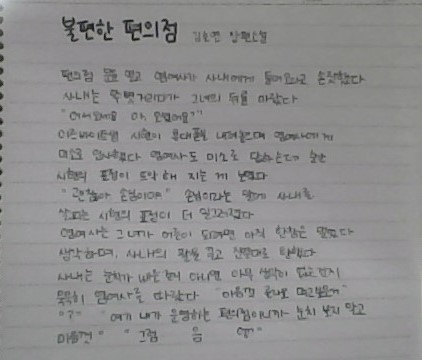 불편한 편의점 김호연 장편소설
편의점 문을 열고 염여사가 사내에게 들어오라고 손짓했다
사내는 쭈뼛거리다가 그녀의 뒤를 따랐다
"어서오세요 아 오셨어요?"
아르바이트생 시현이 휴대폰을 내려놓으며 염여사에게
미소로 인사했다 염여사도 미소로 답하는데 순간
시현의 표정이 해 지는 게 보였다
"괜찮아 손님이야" 손님이라는 말에 사내를
살피는 시현의 표정이 더 일그러졌다
염여사는 그녀가 어른이 되려면 아직 한참은 멀었다
생각하며, 사내의 팔을 끌고 향했다
사내는 눈치가 빠른 건지 아니면 아무 생각이 없는 건지
묵묵히 염여사를 따랐다 "마음껏 골라보게"
"?" "여기 내가 운영하는 편의점이니까 눈치 보지 말고
마음껏" "그럼 음 어"